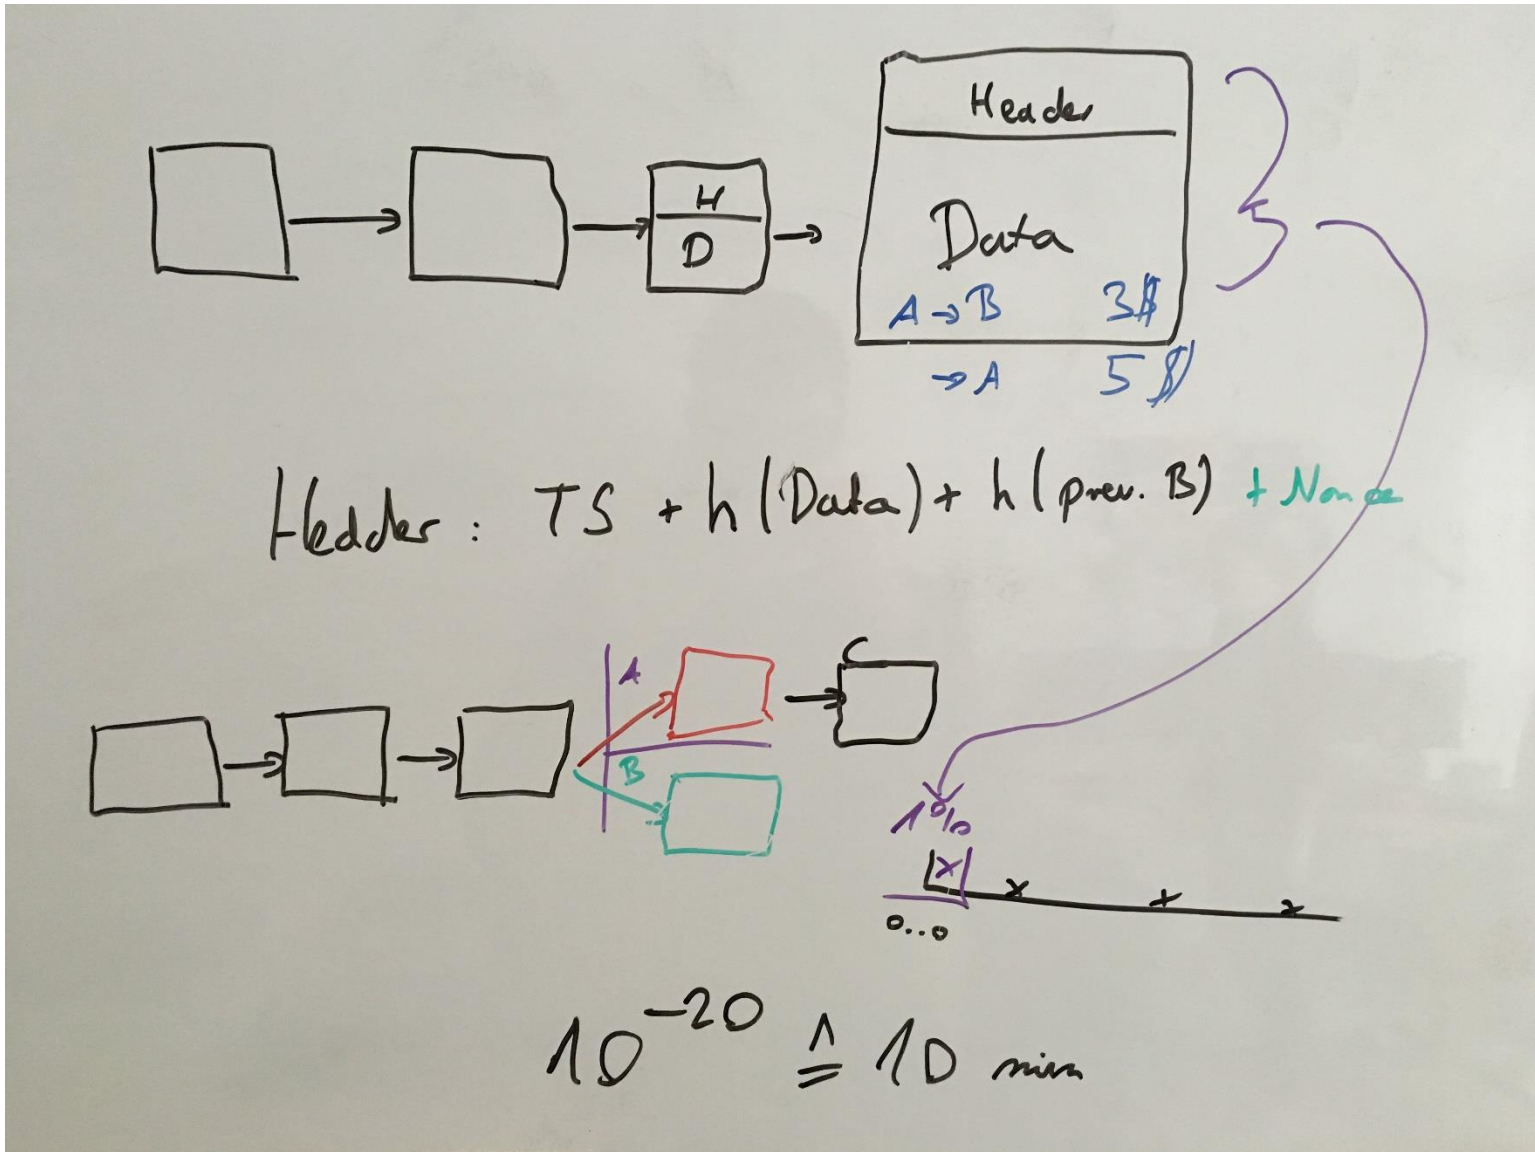 Header
H
D
Data
A → B 3$
→ A 5$
Header : TS + h(Data) + h(prev. B) + Nonce
A
C
B
1%
x x + x
0..0
10^-20 ≙ 10 min